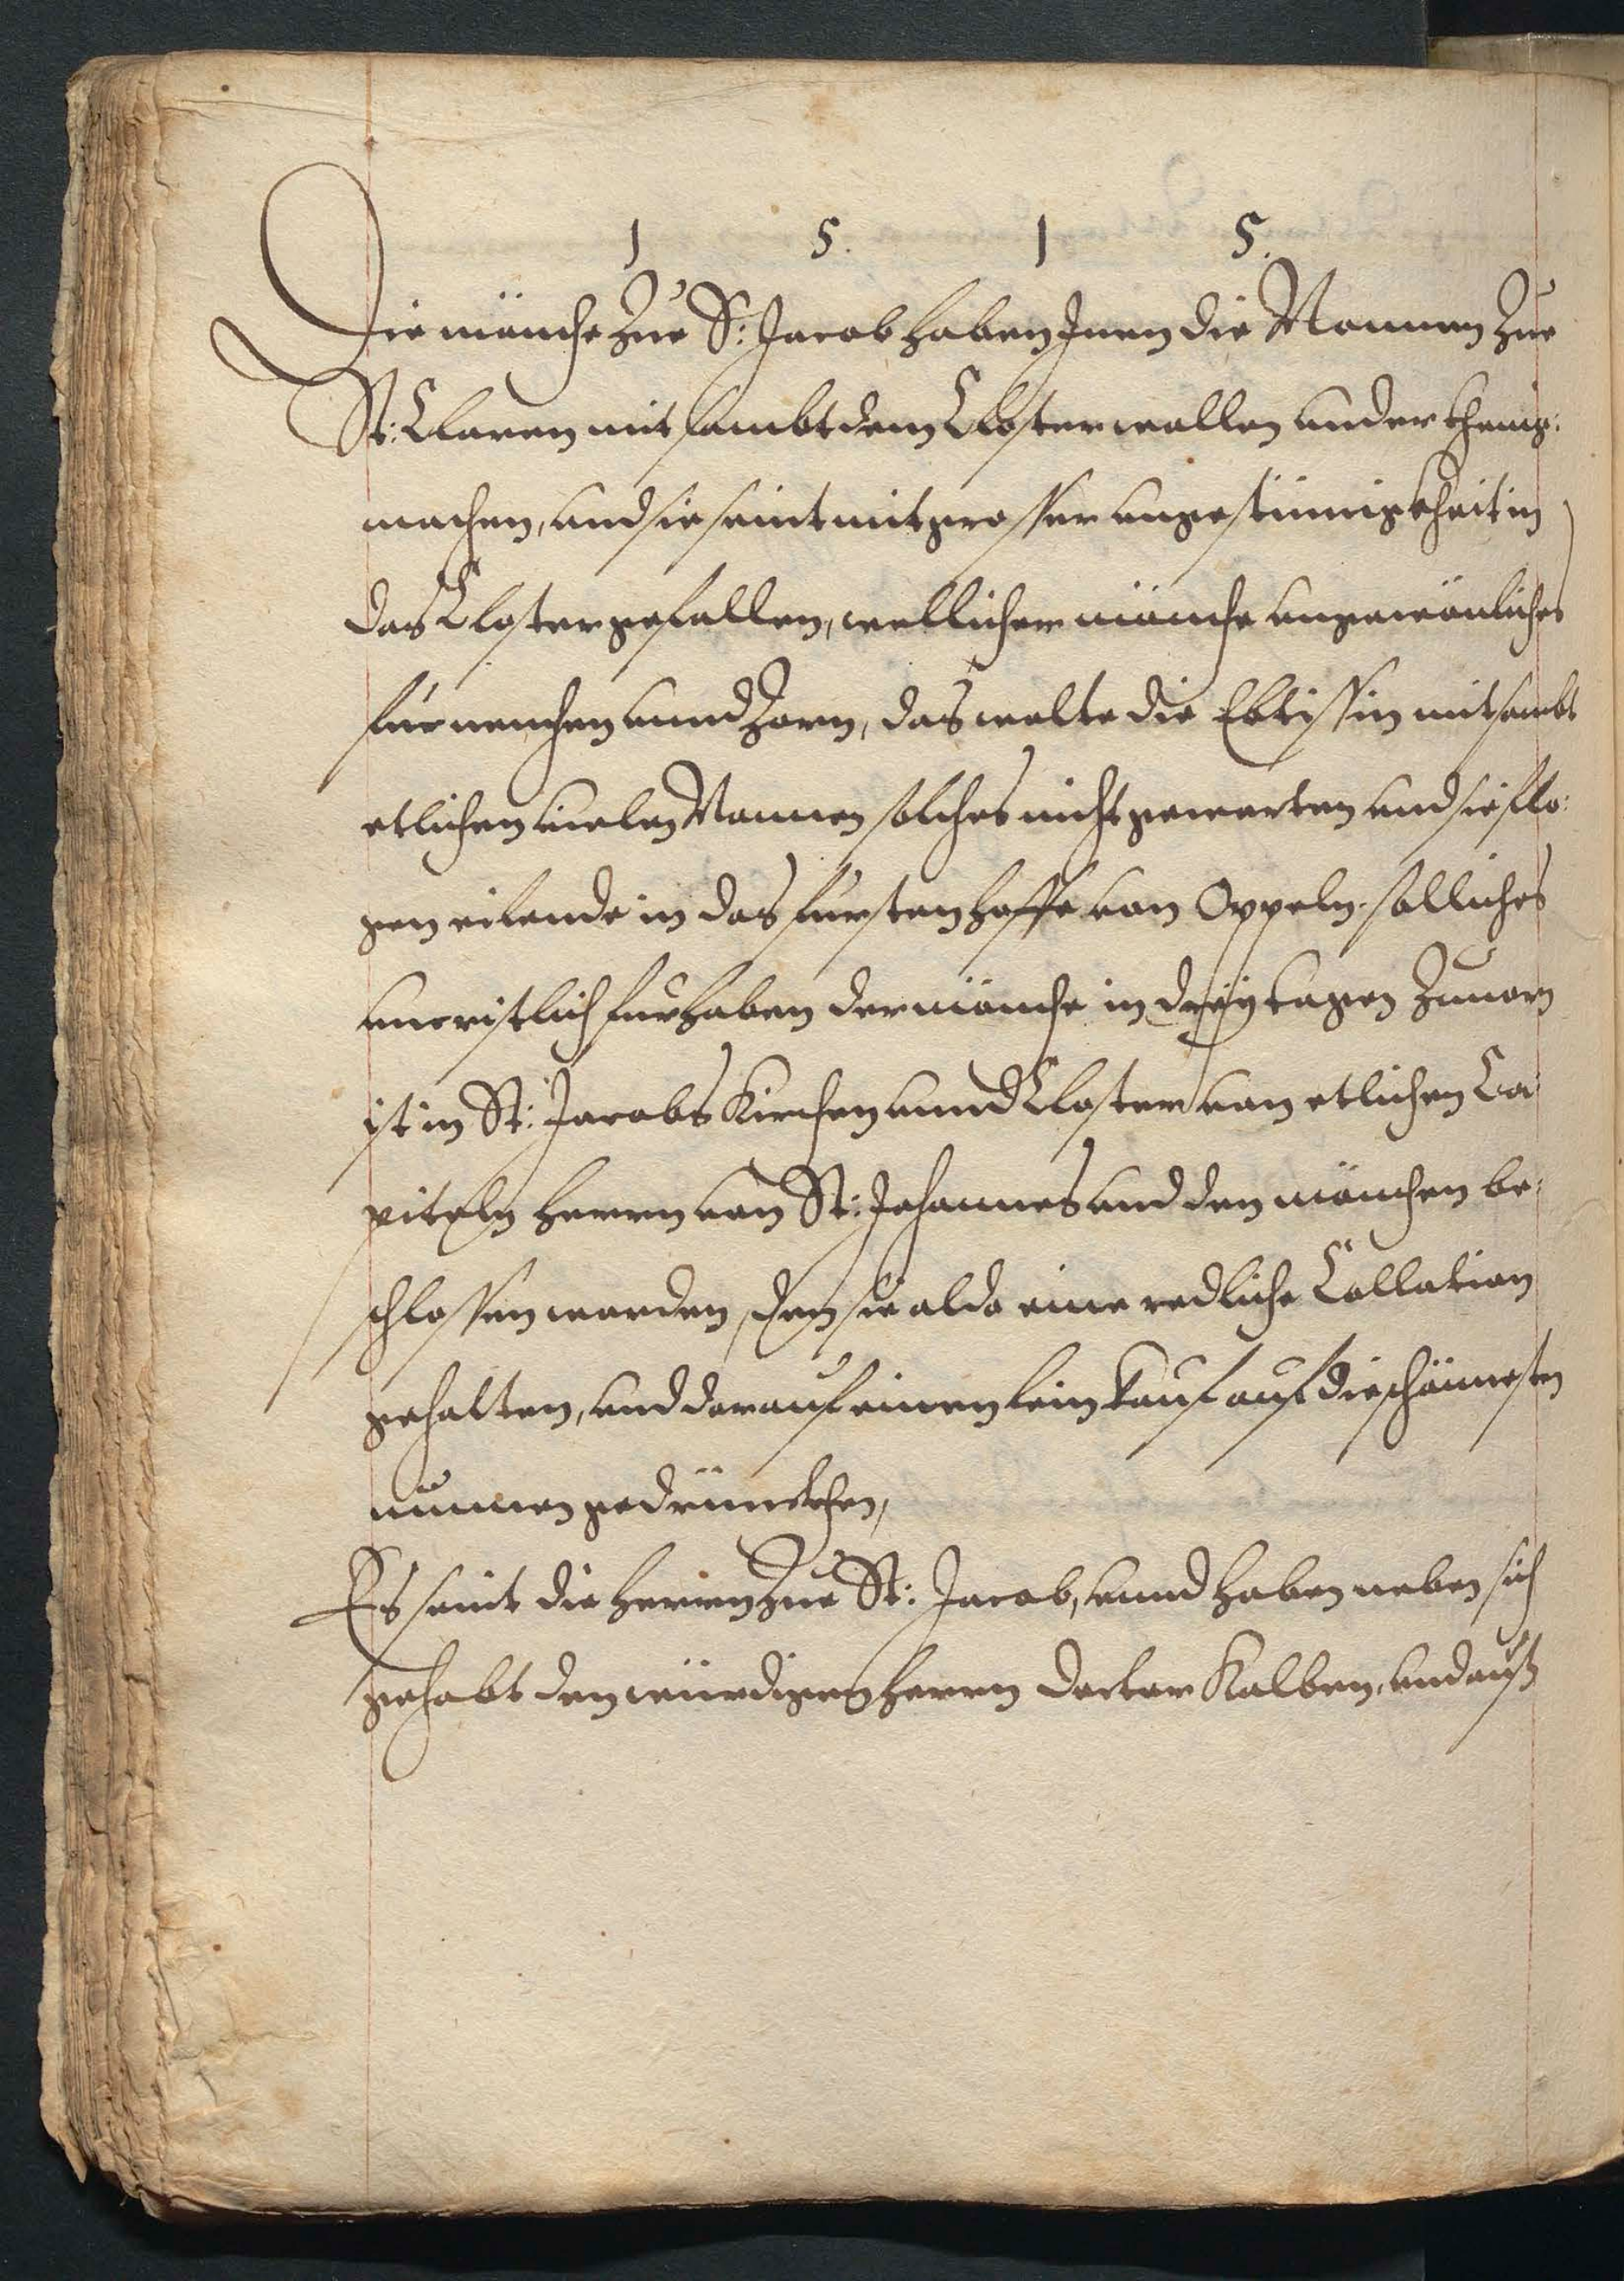 1 5. 1 5.
Die mönche Zue S: Jacob haben Inen die Nonnen Zue
St: Claren mit sambt dem Closter wollen underthenig:
machen, und sie seint mit grosser ungestümigkheit in
das Closter gefallen, wellicher mönche ungewönliches
fürnemhen unnd Zorn, das wolte die Ebtissin mit sambt
etlichen vielen Nonnen solches nicht gewarten und sie flo:
gen eilende in das fursten hoffe von Oppeln. solliches
uncristlich furhaben der mönche in dreÿ tagen Zuvorn
ist in St: Jacobs Kirchen unnd Closter von etlichen Ca
piteln herrn von St: Johannes und den mönchen be:
schlossen worden, den sie alda eine redliche Collation
gehalten, und darauf einen leinkauf auf die schönnesten
nünnen gedrünckhen,
Es seint die herrn Zue St: Jacob, unnd haben neben sich
gehabt den würdigen herrn Doctor Kolben, und auß